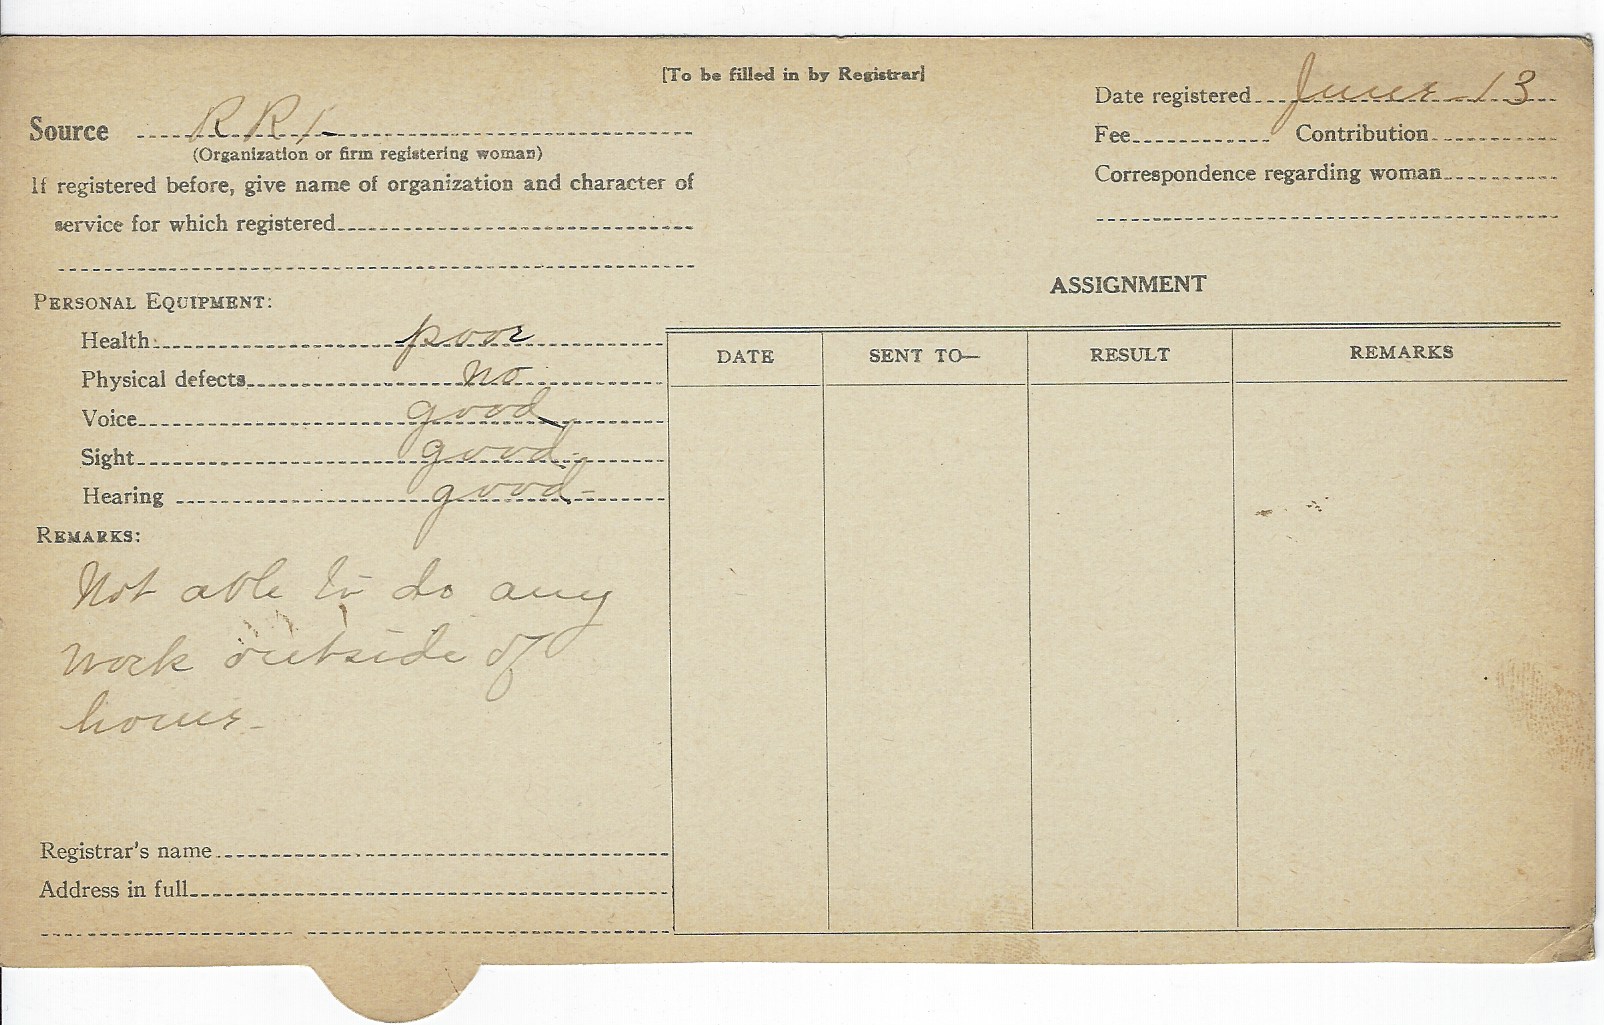 [To be filled in by Registrar]
Date registered June 13
Source R R 1
Fee Contribution
(Organization or firm registering woman)
Correspondence regarding woman
If registered before, give name of organization and character of
service for which registered
ASSIGNMENT
PERSONAL EQUIPMENT:
Health poor
Physical defects no
Voice good
Sight good
Hearing good
DATE SENT TO— RESULT REMARKS
REMARKS:
Not able to do any
work outside of
home
Registrar's name
Address in full